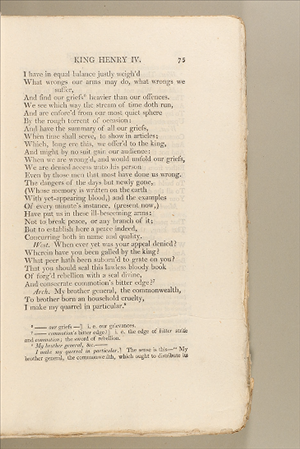 KING HENRY IV. 75
I have in equal balance justly weigh'd
What wrongs our arms may do, what wrongs we
suffer,
And find our griefs heavier than our offences.
We see which way the stream of time doth run,
And are enforc'd from our most quiet sphere
By the rough torrent of occasion:
And have the summary of all our griefs,
When time shall serve, to show in articles;
Which, long ere this, we offer'd to the king,
And might by no suit gain our audience:
When we are wrong'd, and would unfold our griefs,
We are denied access unto his person
Even by those men that most have done us wrong.
The dangers of the days but newly gone,
(Whose memory is written on the earth
With yet-appearing blood,) and the examples
Of every minute's instance, (present now,)
Have put us in these ill-beseeming arms:
Not to break peace, or any branch of it;
But to establish here a peace indeed,
Concurring both in name and quality.
West. When ever yet was your appeal denied?
Wherein have you been galled by the king?
What peer hath been suborn'd to grate on you?
That you should seal this lawless bloody book
Of forg'd rebellion with a seal divine,
And consecrate commotion's bitter edge?
Arch. My brother general, the commonwealth,
To brother born an household cruelty,
I make my quarrel in particular.
— our griefs —] i. e. our grievances.
— commotion's bitter edge?] i. e. the edge of bitter strife
and commotion; the sword of rebellion.
My brother general, &c.—
I make my quarrel in particular.] The sense is this—“ My
brother general, the commonwealth, which ought to distribute its